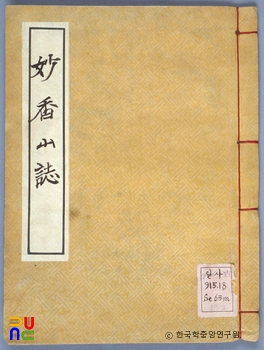 妙香山誌
일사
915.18
Se63m
ⓒ 한국학중앙연구원